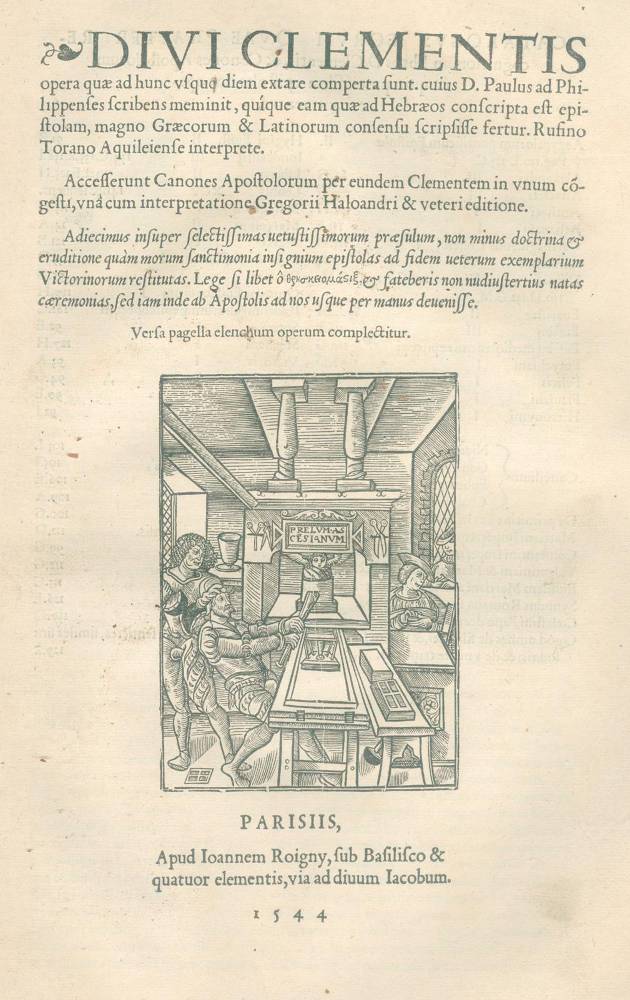 DIVI CLEMENTIS
opera quæ ad hunc vſque diem extare comperta ſunt. cuius D. Paulus ad Phi-
lippenſes ſcribens meminit, quíque eam quæ ad Hebræos conſcripta eſt epi-
ſtolam, magno Græcorum & Latinorum conſenſu ſcripſiſſe fertur. Rufino
Torano Aquileienſe interprete.
Acceſſerunt Canones Apoſtolorum per eundem Clementem in vnum cō-
geſti, vnà cum interpretatione Gregorii Haloandri & veteri editione.
Adiecimus inſuper ſelectiſſimas uetuſtiſſimorum præſulum, non minus doctrina &
eruditione quàm morum ſanctimonia inſignium epiſtolas ad fidem ueterum exemplarium
Victorinorum reſtitutas. Lege ſi libet ô & fateberis non nudiuſtertius natas
cæremonias, ſed iam inde ab Apoſtolis ad nos uſque per manus deueniſſe.
Verſa pagella elenchum operum complectitur.
PRELVM·AS
CESIANVM
PARISIIS,
Apud Ioannem Roigny, ſub Baſiliſco &
quatuor elementis, via ad diuum Iacobum.
1544